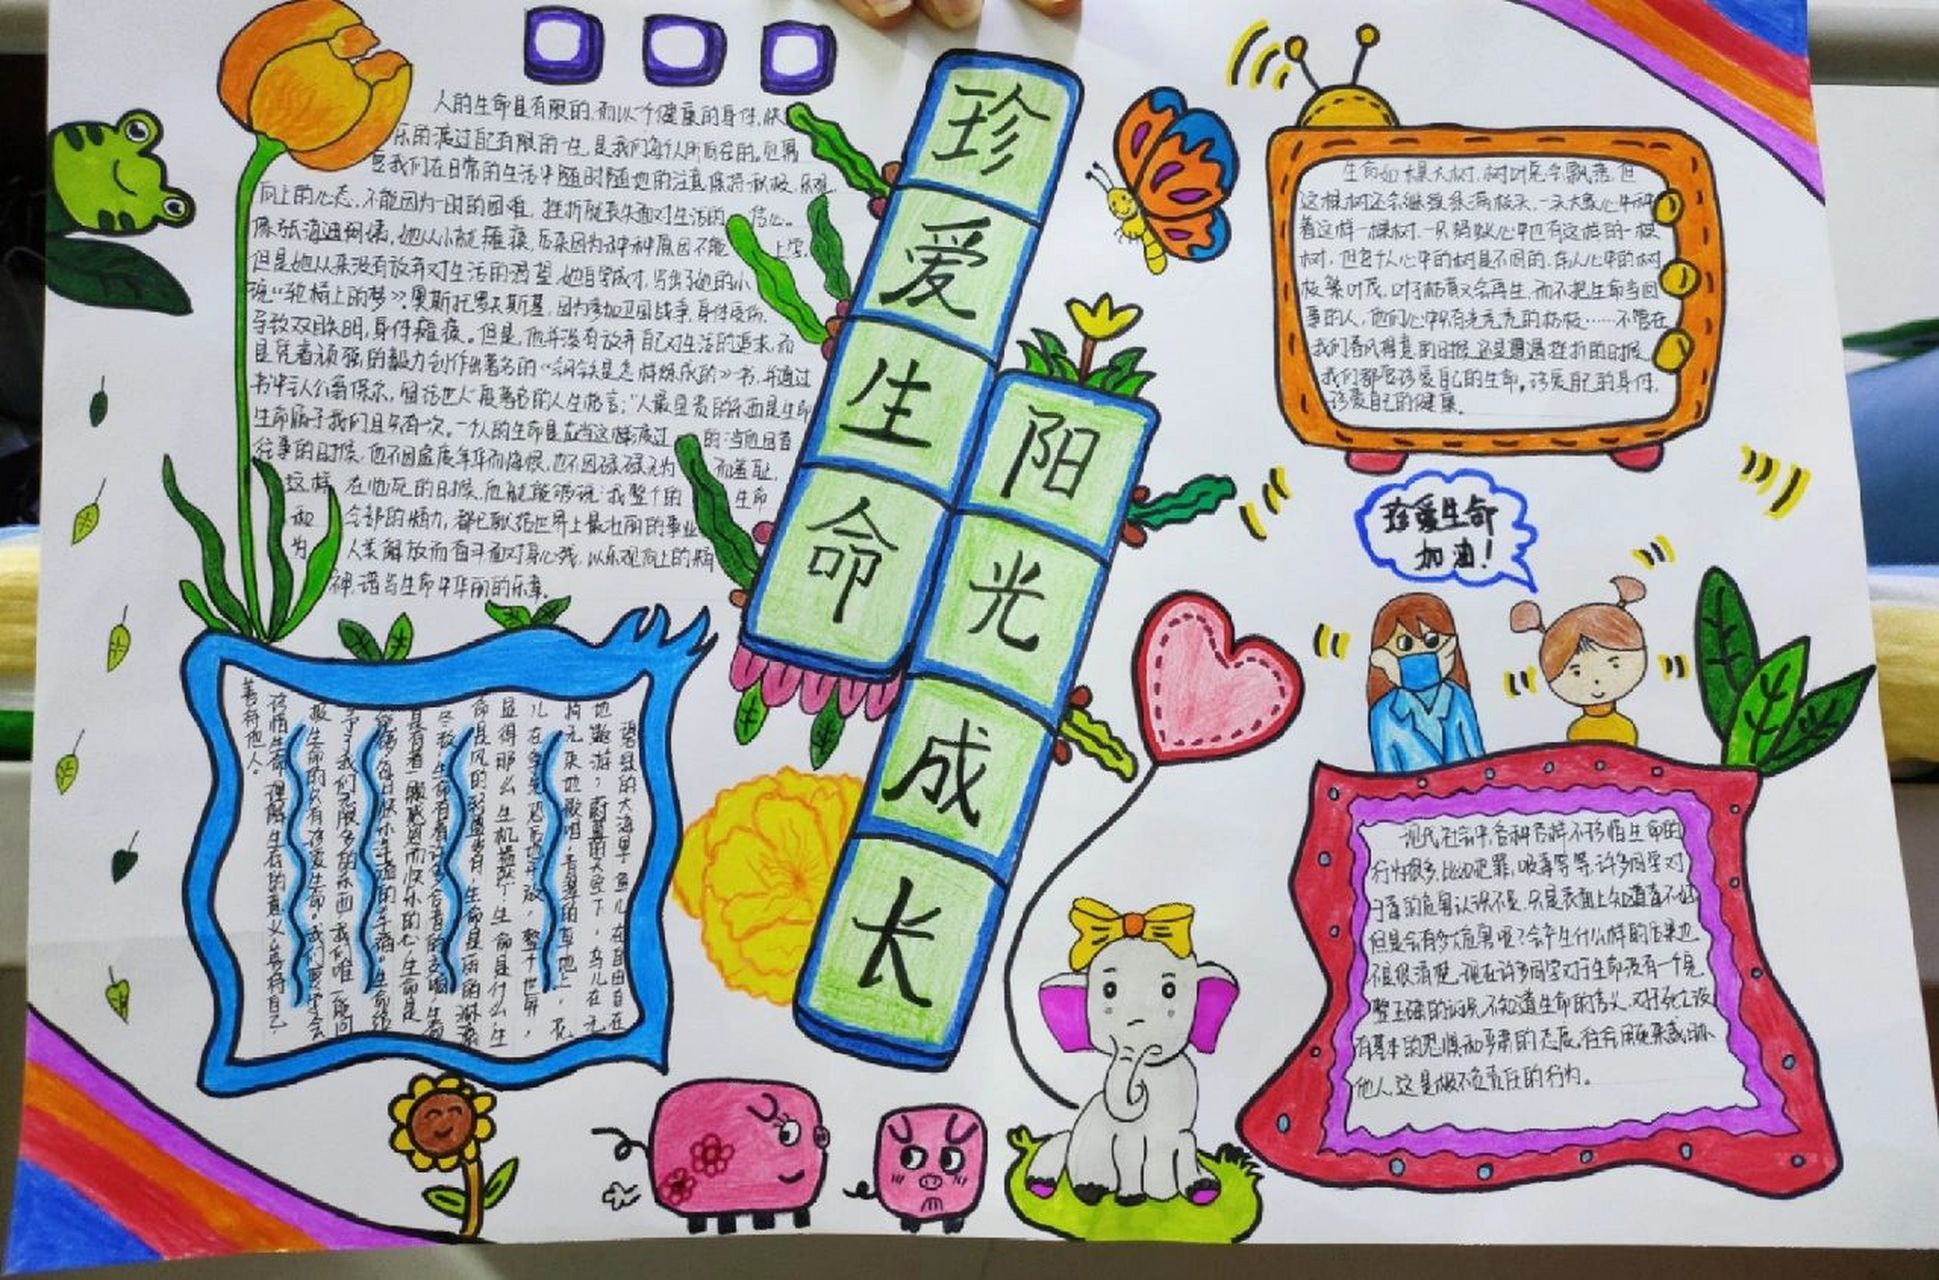 珍爱生命
阳光成长
人的生命是有限的,而以一个健康的身体,快
乐的渡过配有限的一生,是我们每个人所向往的。但需
要我们在日常的生活中随时随地的注意保持积极、乐观
向上的心态,不能因为一时的困难、挫折就丧失面对生活的信心。
像张海迪阿姨,她从小就瘫痪,后来因为种种原因不能上学,
但是她从来没有放弃对生活的渴望,她自学成才,写出了她的小
说“轮椅上的梦》;奥斯托罗夫斯基,因为参加卫国战争,身体受伤,
导致双目失明,身体瘫痪。但是,他并没有放弃自己对生活的追求,而
是凭着顽强的毅力创作出著名的《钢铁是怎样炼成的》一书,并通过
书中主人公保尔,留给世人一度著名的人生格言:“人最宝贵的东西是生命
生命属于我们且只有一次。一个人的生命是应当这样渡过的:当他回首
往事的时候,他不因虚度年华而悔恨,也不因碌碌无为而羞耻,
这样在临死的时候,他就能够说:我整个的生命
和全部的精力,都已献给世界上最壮丽的事业
为人类解放而奋斗面对身心残,以乐观向上的精
神,谱写生命中华丽的乐章。
生命如一棵大树,树叶虽会飘落,但
这棵树还会继续绿满枝头,一头大象心中种
着这样一棵树,一只蚂蚁心中也有这样的一棵
树,但每个人心中的树是不同的,在人心中的树
枝繁叶茂,叶子枯黄又会再生,而不把生命当回
事的人,他们心中只有光秃秃的枯枝……不管在
我们春风得意的时候,还是遭遇挫折的时候,
我们都应珍爱自己的生命。珍爱自己的身体,
珍爱自己的健康。
珍爱生命
加油!
碧绿的大海里,鱼儿在自由自在
地遨游;蔚蓝的天空下,鸟儿在无
拘无束地歌唱;青翠的草地上,花
儿在争先恐后地开放,整个世界,
显得那么生机勃勃。生命是什么?生
报生命的只有珍爱生命。我们要学会
珍惜生命,理解生存的真义,善待自己,
善待他人。
现代社会中,各种各样不珍惜生命的
行为很多,比如犯罪,吸毒等等,许多同学对
于毒的危害认识不足,只是表面上知道毒不好
但是会有多大危害呢?会产生什么样的后果也
不是很清楚。现在许多同学对于生命没有一个完
整正确的认识,不知道生命的含义,对于死亡没
有基本的恐惧和严肃的态度,往往用死来威胁
他人,这是极不负责任的行为。